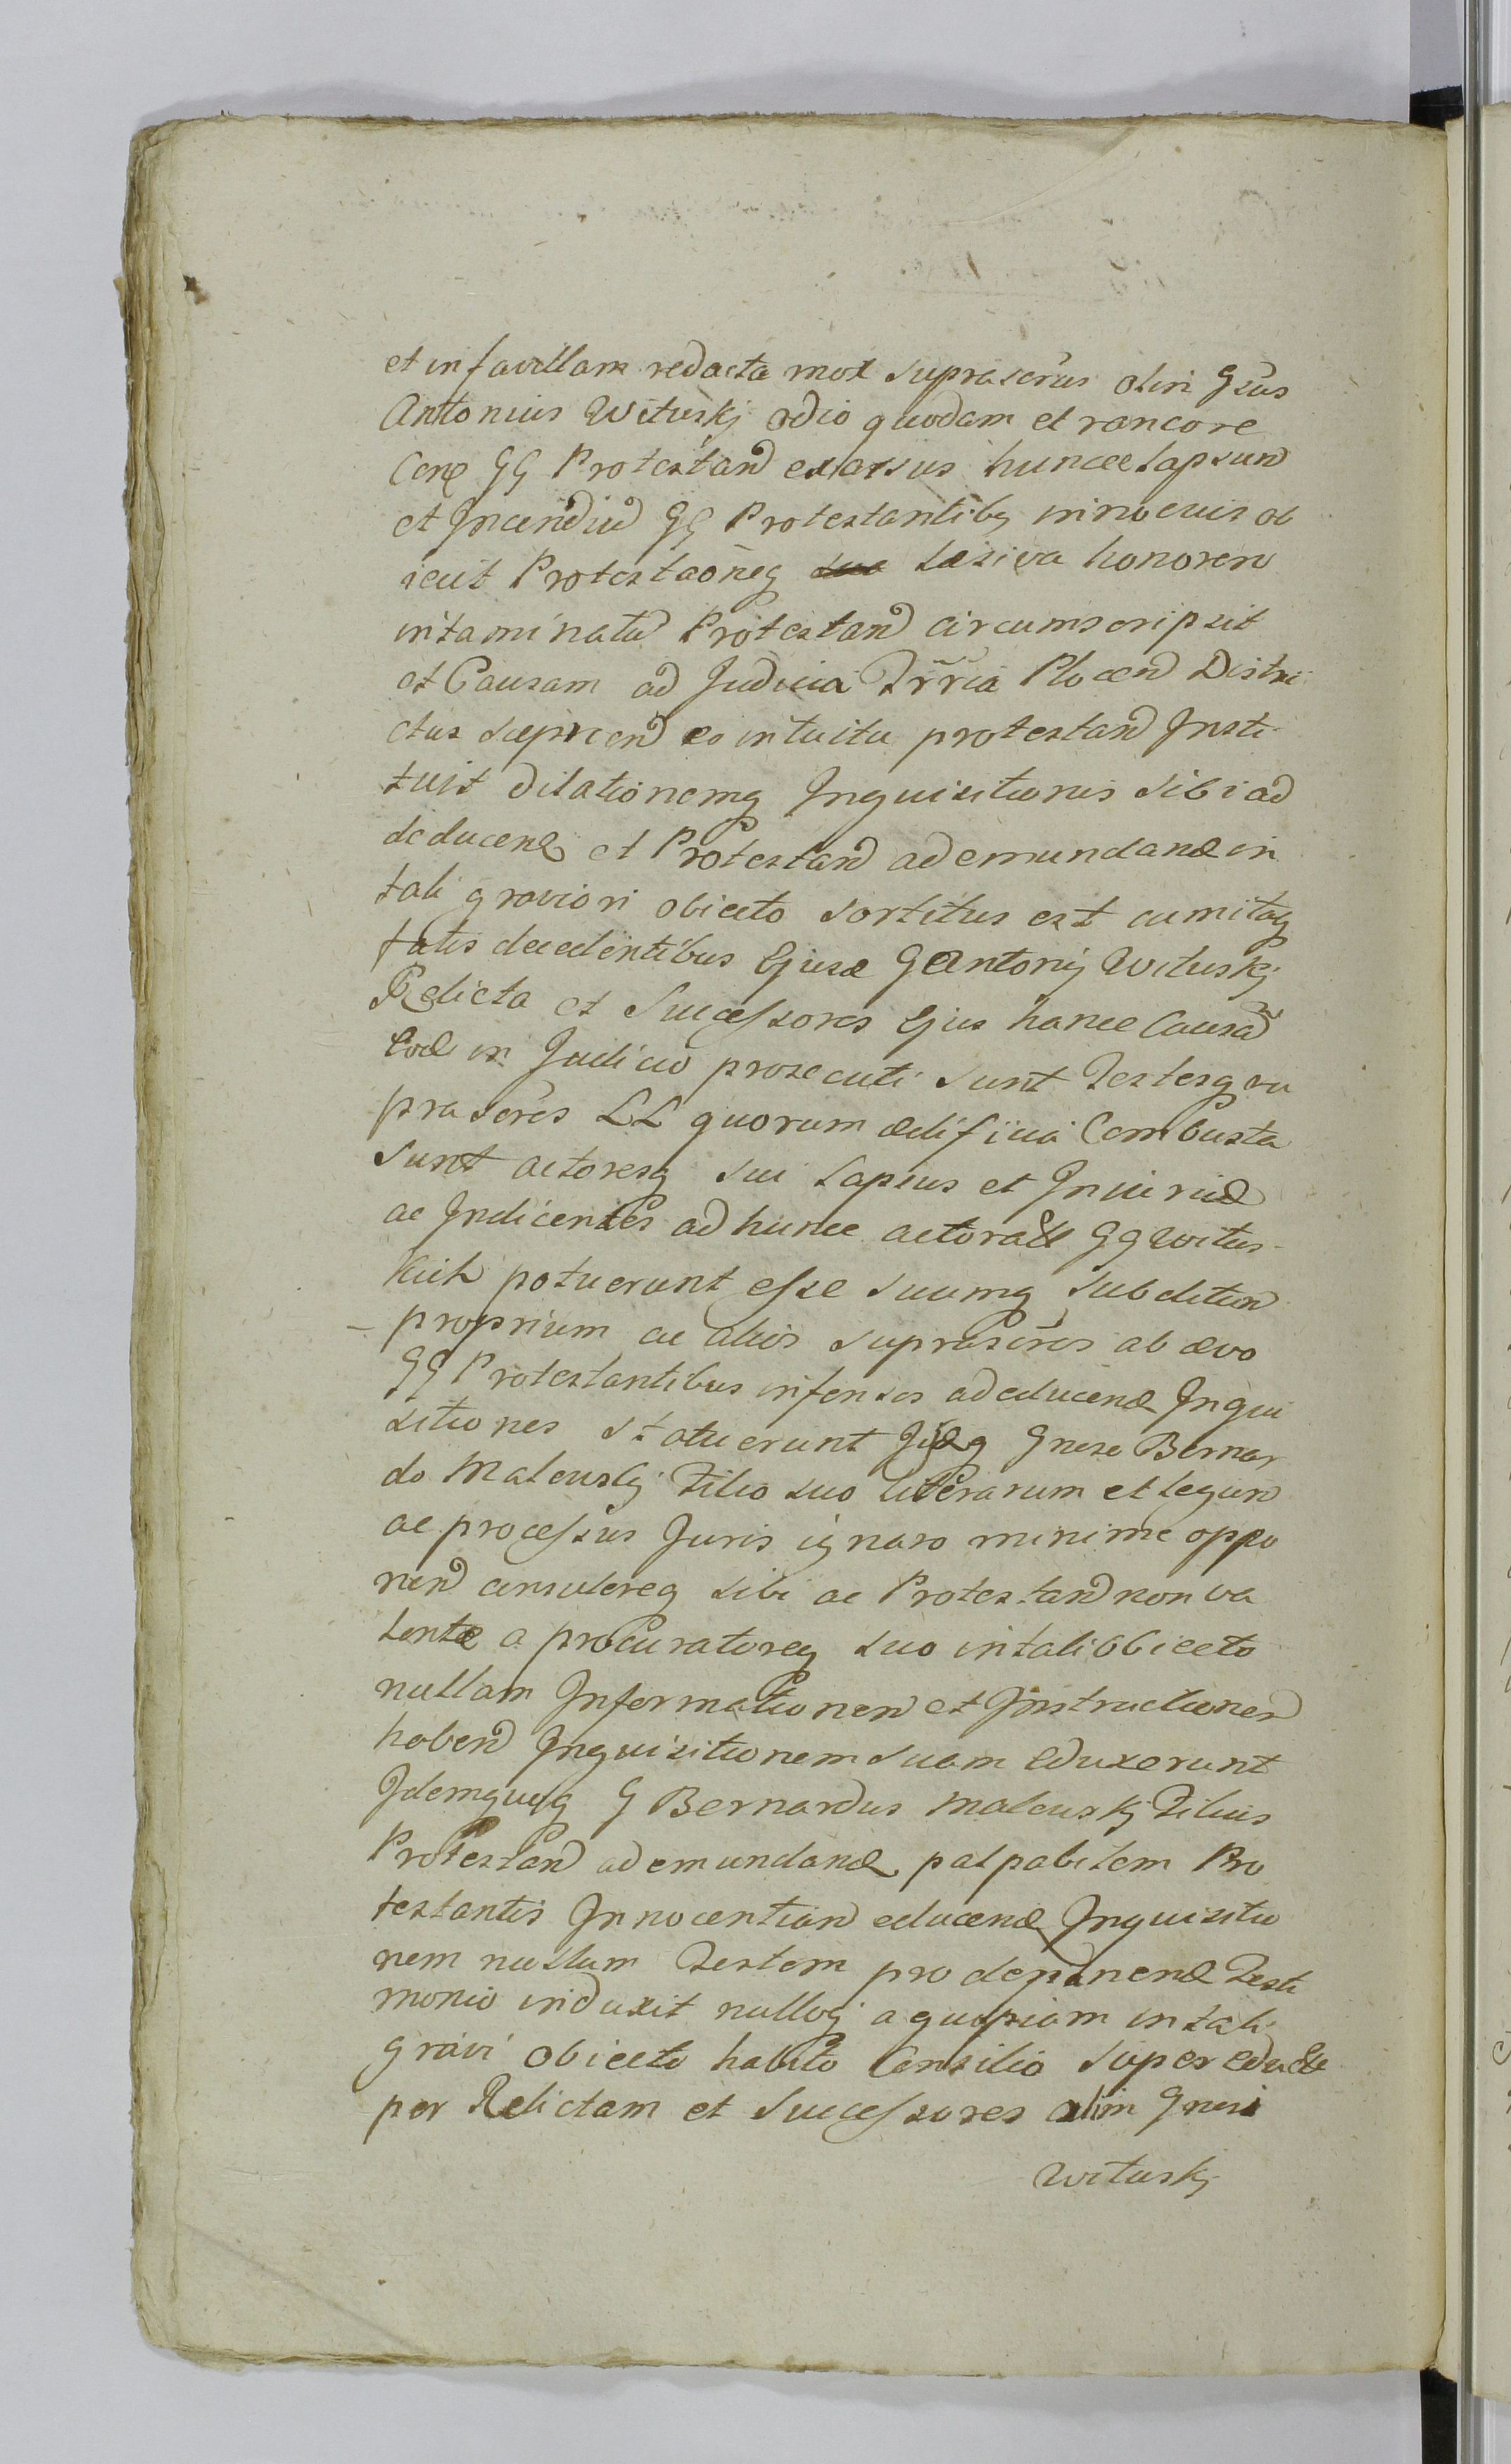 et in favillam redacta mox suprascrus olim Gsus
Antonius Wituskj odio quodam et rancore
Conq GG Protestand exarsus huncce Lapsund
et Incendiud GG Protestantibq innocuis ob
iecit Protestaoneq Læsiva honorem
intaminatu Protestand circumscripsit
et Causam ad Judicia Trria Plocend Distri
ctus Siepricend eo intuitu protestand Insti
tuit dilationemq Inquisitionis sibi ad
deducend et Protestand ad emundand in
tali graviori obiecto sortitus est cumitaq
fatis decedentibus Ejusd G Antonij Wituskj
Relicta et Successores Ejus hancce Causad
Eod in Judicio prosecuti sunt Testesq su
prascres LL quorum ædificia Combusta
sunt actoresq sui Lapsus et Iniuriæ
ac Indicentes ad huncce actorate GG Witus
kich potuerunt esse suumq subditum
proprium ac alios suprascres ab ævo
GG Protestantibus infensos ad educend Inqui
sitiones statuerunt Gnoso Bernar
do Maleuskj Filio suo literarum et legum
ac processus Juris ignaro minime oppo
nend consulereq sibi ac Protestand non va
lente a procuratoreq suo in tali obiecto
nullam Informationem et Instructionem
habend Inquisitionem suam eduxerunt
Idemqueq G Bernardus Maleuskj Filius
Protestand ad emundand palpabilem Pro
testantis Innocentiam educend Inquisitio
nem nullum Testem pro deponend Testi
monio induxit nulloq a quopiam in tali
gravi obiecto habito Consilio super educte
per Relictam et Successores olim Gnosi
Wituskj